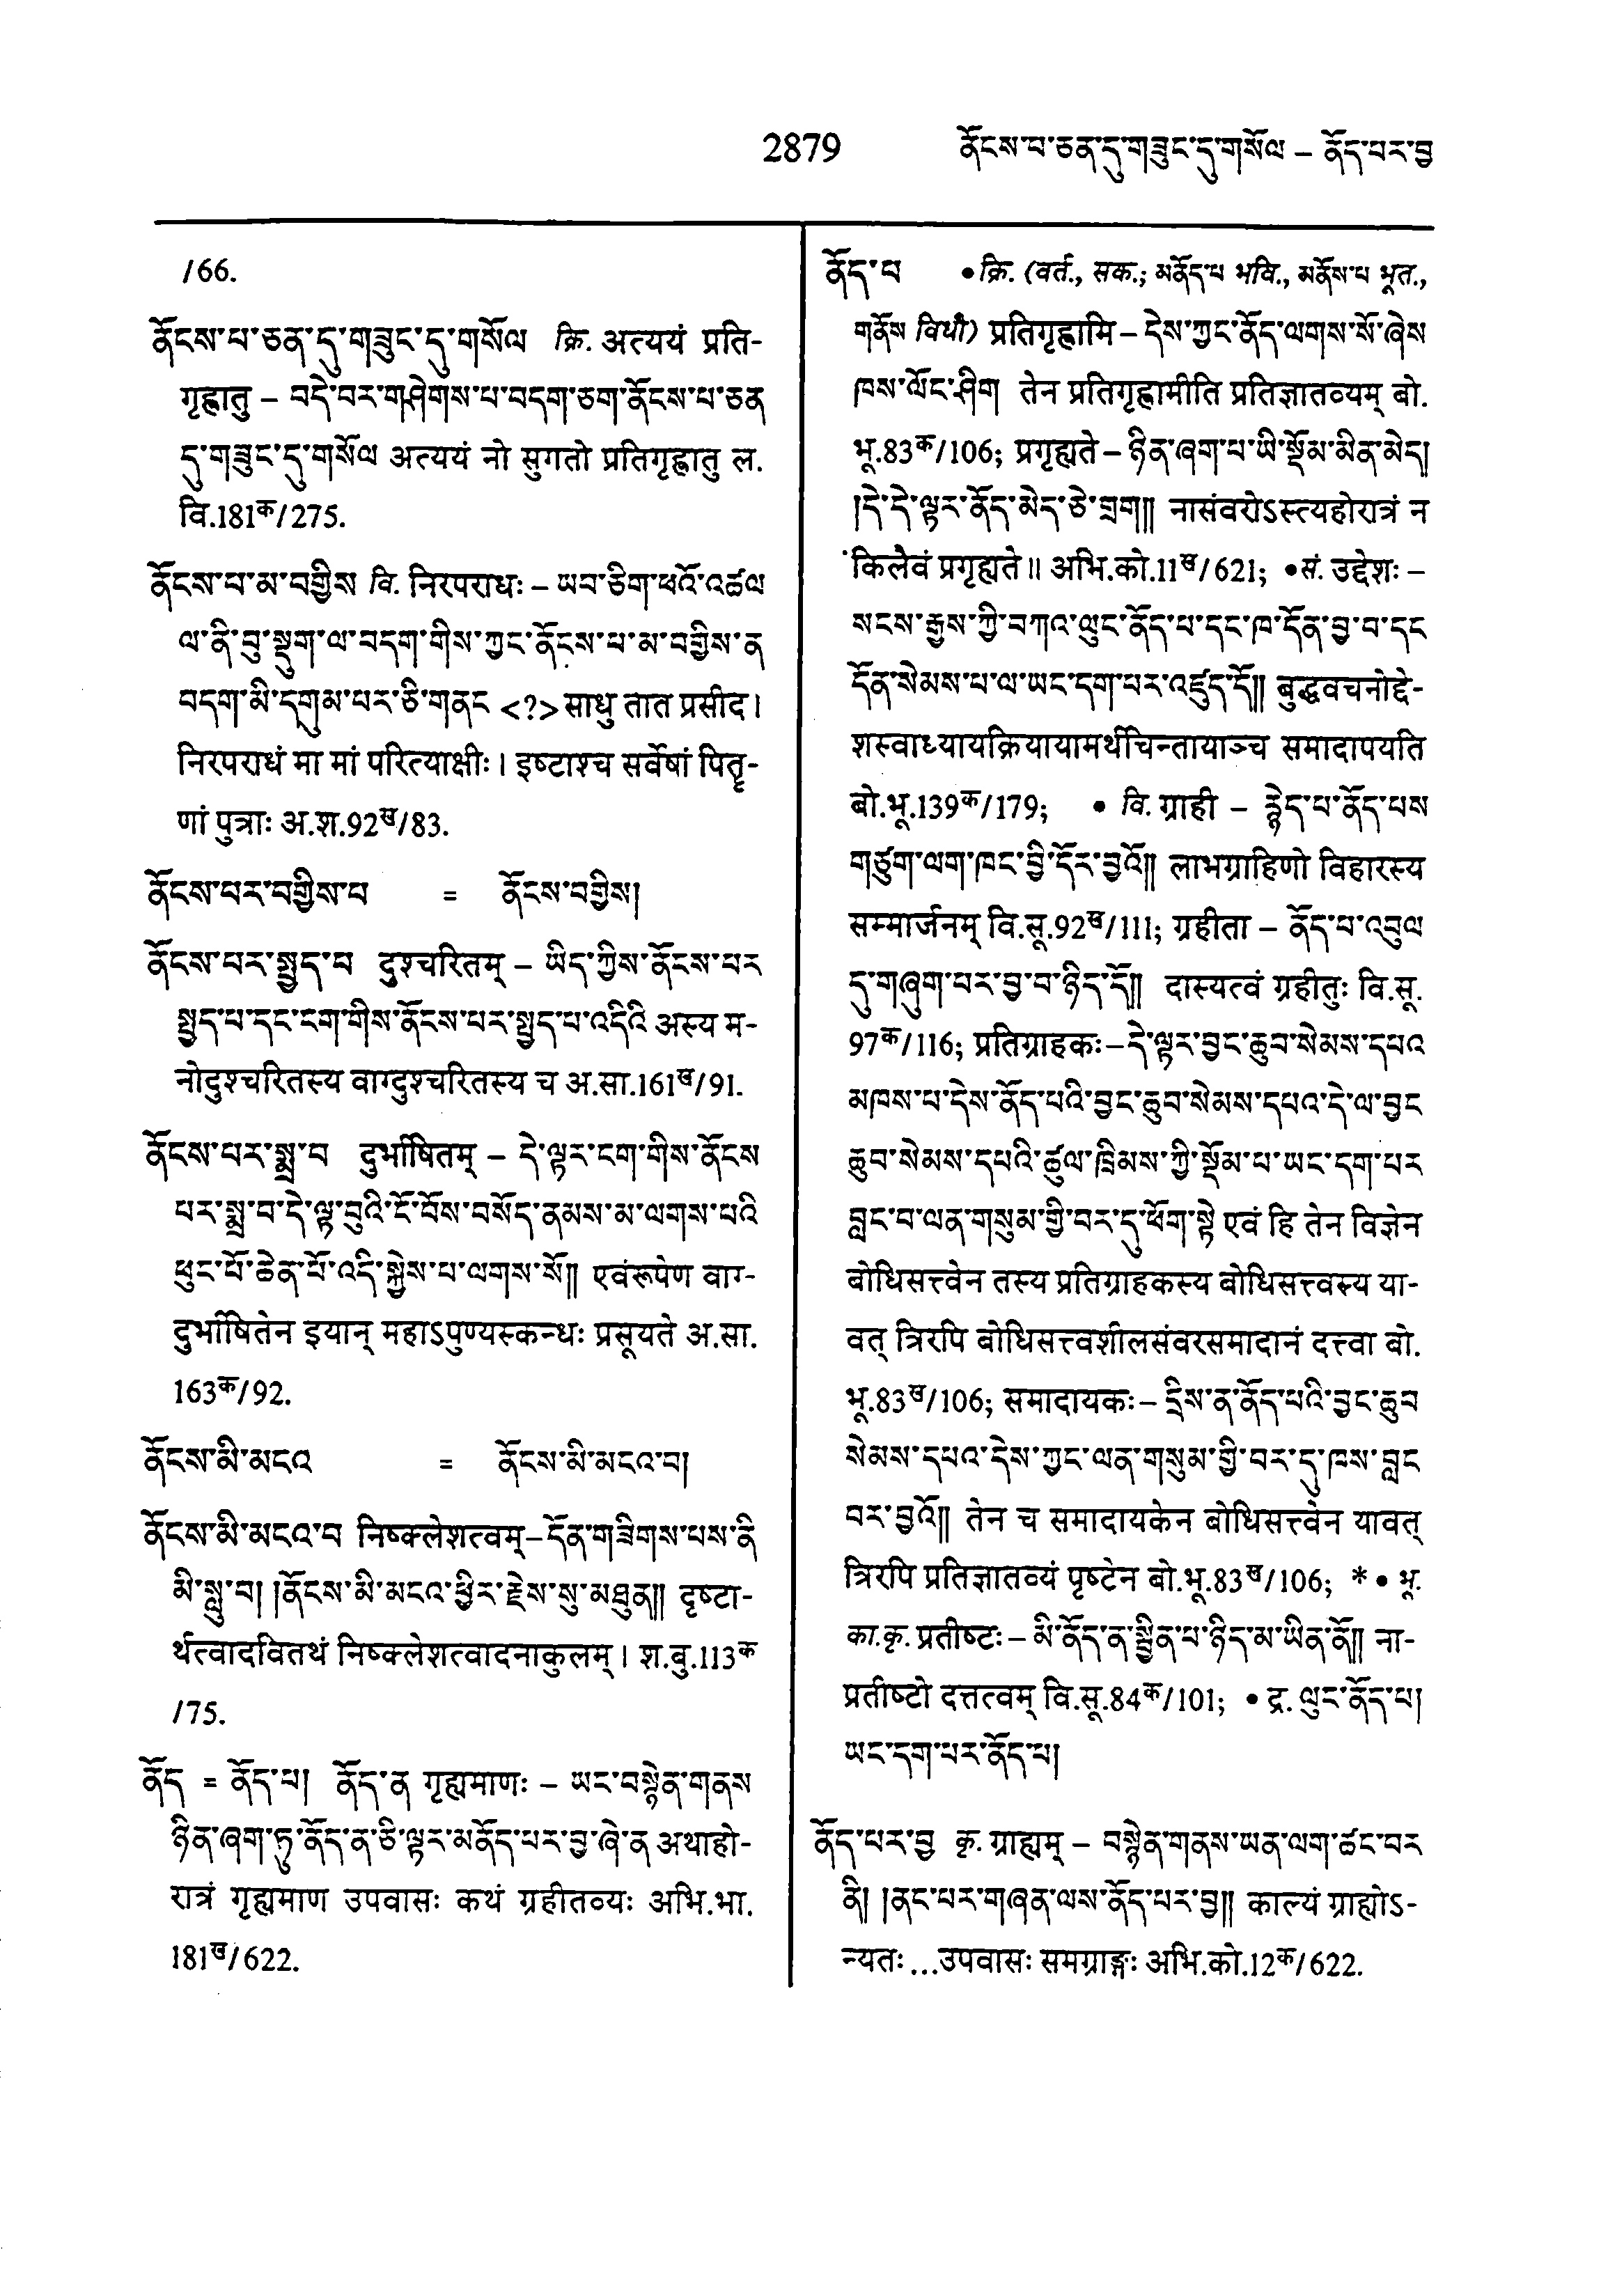 2879 ནོངས་པ་ཅན་དུ་གཟུང་དུ་གསོལ – ནོད་པར་བྱ
/66.
ནོངས་པ་ཅན་དུ་གཟུང་དུ་གསོལ क्रि. अत्ययं प्रति-
गृह्णातु – བདེ་བར་གཤེགས་པ་བདག་ཅག་ནོངས་པ་ཅན
དུ་གཟུང་དུ་གསོལ अत्ययं नो सुगतो प्रतिगृह्णातु ल.
वि.181क/275.
ནོངས་པ་མ་བགྱིས वि. निरपराधः – ཡབ་ཅིག་ཕའོ་འཚལ
ལ་ནི་བུ་སྡུག་ལ་བདག་གིས་ཀྱང་ནོངས་པ་མ་བགྱིས་ན
བདག་མི་དགུམ་པར་ཅི་གནང <?> साधु तात प्रसीद।
निरपराधं मा मां परित्याक्षीः। इष्टाश्च सर्वेषां पितॄ-
णां पुत्राः अ.श.92ख/83.
ནོངས་པར་བགྱིས་པ = ནོངས་བགྱིས།
ནོངས་པར་སྤྱད་པ दुश्चरितम् – ཡིད་ཀྱིས་ནོངས་པར
སྤྱད་པ་དང་ངག་གིས་ནོངས་པར་སྤྱད་པ་འདིའི अस्य म-
नोदुश्चरितस्य वाग्दुश्चरितस्य च अ.सा.161ख/91.
ནོངས་པར་སྨྲ་བ दुर्भाषितम् – དེ་ལྟར་ངག་གིས་ནོངས
པར་སྨྲ་བ་དེ་ལྟ་བུའི་ངོ་བོས་བསོད་ནམས་མ་ལགས་པའི
ཕུང་པོ་ཆེན་པོ་འདི་སྐྱེས་པ་ལགས་སོ॥ एवंरूपेण वाग्-
दुर्भाषितेन इयान् महाऽपुण्यस्कन्धः प्रसूयते अ.सा.
163क/92.
ནོངས་མི་མངའ = ནོངས་མི་མངའ་བ།
ནོངས་མི་མངའ་བ निष्क्लेशत्वम्–དོན་གཟིགས་པས་ནི
མི་སླུ་བ། །ནོངས་མི་མངའ་ཕྱིར་རྗེས་སུ་མཐུན॥ दृष्टा-
र्थत्वादवितथं निष्क्लेशत्वादनाकुलम्। श.बु.113क
/75.
ནོད = ནོད་པ། ནོད་ན गृह्यमाणः – ཡང་བསྙེན་གནས
ཉིན་ཞག་ཏུ་ནོད་ན་ཅི་ལྟར་མནོད་པར་བྱ་ཞེ་ན अथाहो-
रात्रं गृह्यमाण उपवासः कथं ग्रहीतव्यः अभि.भा.
181ख/622.
ནོད་པ •क्रि. (वर्त., सक.; མནོད་པ भवि., མནོས་པ भूत.,
གནོས विधौ) प्रतिगृह्णामि – དེས་ཀྱང་ནོད་ལགས་སོ་ཞེས
ཁས་ལོང་ཤིག तेन प्रतिगृह्णामीति प्रतिज्ञातव्यम् बो.
भू.83क/106; प्रगृह्यते – ཉིན་ཞག་པ་ཡི་སྡོམ་མིན་མེད།
།དེ་དེ་ལྟར་ནོད་མེད་ཅེ་གྲག॥ नासंवरोऽस्त्यहोरात्रं न
किलैवं प्रगृह्यते॥ अभि.को.11ख/621; •सं. उद्देशः –
སངས་རྒྱས་ཀྱི་བཀའ་ལུང་ནོད་པ་དང་ཁ་དོན་བྱ་བ་དང
དོན་སེམས་པ་ལ་ཡང་དག་པར་འཛུད་དོ॥ बुद्धवचनोद्दे-
शस्वाध्यायक्रियायामर्थचिन्तायाञ्च समादापयति
बो.भू.139क/179; • वि. ग्राही – རྙེད་པ་ནོད་པས
གཙུག་ལག་ཁང་བྱི་དོར་བྱའོ॥ लाभग्राहिणो विहारस्य
सम्मार्जनम् वि.सू.92ख/111; ग्रहीता – ནོད་པ་འབུལ
དུ་གཞུག་པར་བྱ་བ་ཉིད་དོ॥ दास्यत्वं ग्रहीतुः वि.सू.
97क/116; प्रतिग्राहकः–དེ་ལྟར་བྱང་ཆུབ་སེམས་དཔའ
མཁས་པ་དེས་ནོད་པའི་བྱང་ཆུབ་སེམས་དཔའ་དེ་ལ་བྱང
ཆུབ་སེམས་དཔའི་ཚུལ་ཁྲིམས་ཀྱི་སྡོམ་པ་ཡང་དག་པར
བླང་བ་ལན་གསུམ་གྱི་བར་དུ་ཕོག་སྟེ एवं हि तेन विज्ञेन
बोधिसत्त्वेन तस्य प्रतिग्राहकस्य बोधिसत्त्वस्य या-
वत् त्रिरपि बोधिसत्त्वशीलसंवरसमादानं दत्त्वा बो.
भू.83ख/106; समादायकः – དྲིས་ན་ནོད་པའི་བྱང་ཆུབ
སེམས་དཔའ་དེས་ཀྱང་ལན་གསུམ་གྱི་བར་དུ་ཁས་བླང
བར་བྱའོ॥ तेन च समादायकेन बोधिसत्त्वेन यावत्
त्रिरपि प्रतिज्ञातव्यं पृष्टेन बो.भू.83ख/106; *• भू.
का.कृ. प्रतीष्टः – མི་ནོད་ན་སྦྱིན་པ་ཉིད་མ་ཡིན་ནོ॥ ना-
प्रतीष्टो दत्तत्वम् वि.सू.84क/101; • द्र. ལུང་ནོད་པ།
ཡང་དག་པར་ནོད་པ།
ནོད་པར་བྱ कृ. ग्राह्यम् – བསྙེན་གནས་ཡན་ལག་ཚང་བར
ནི། །ནང་པར་གཞན་ལས་ནོད་པར་བྱ॥ काल्यं ग्राह्योऽ-
न्यतः...उपवासः समग्राङ्गः अभि.को.12क/622.